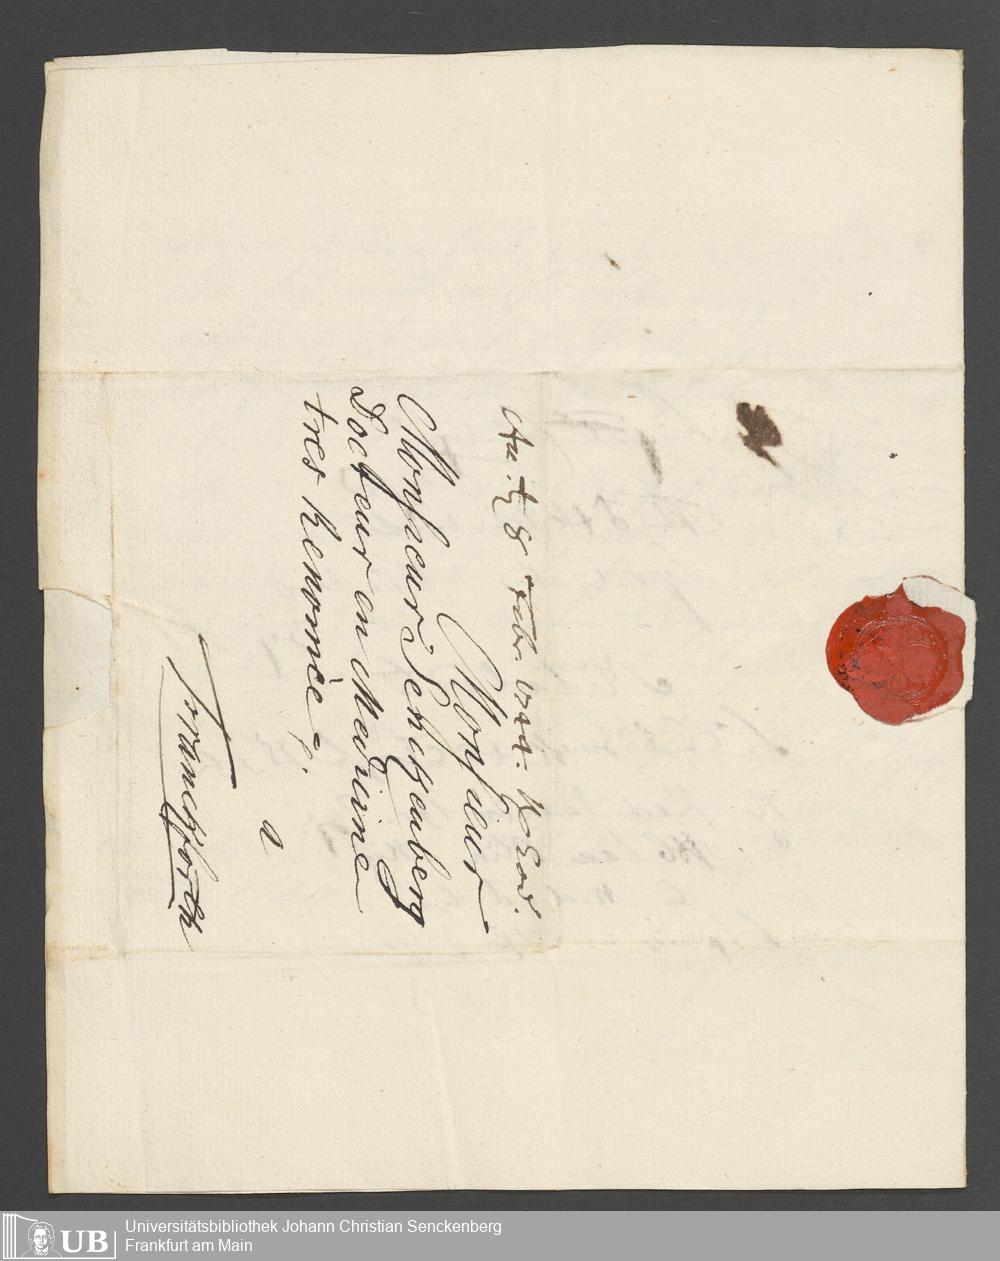 Acc. d. 8 Febr. 1744. R. Eod.
Monsieur
Monsieur Senckenberg
Docteur en Medicine
tres Renomèe.
a
Franckforth
UB
Universitätsbibliothek Johann Christian Senckenberg
Frankfurt am Main